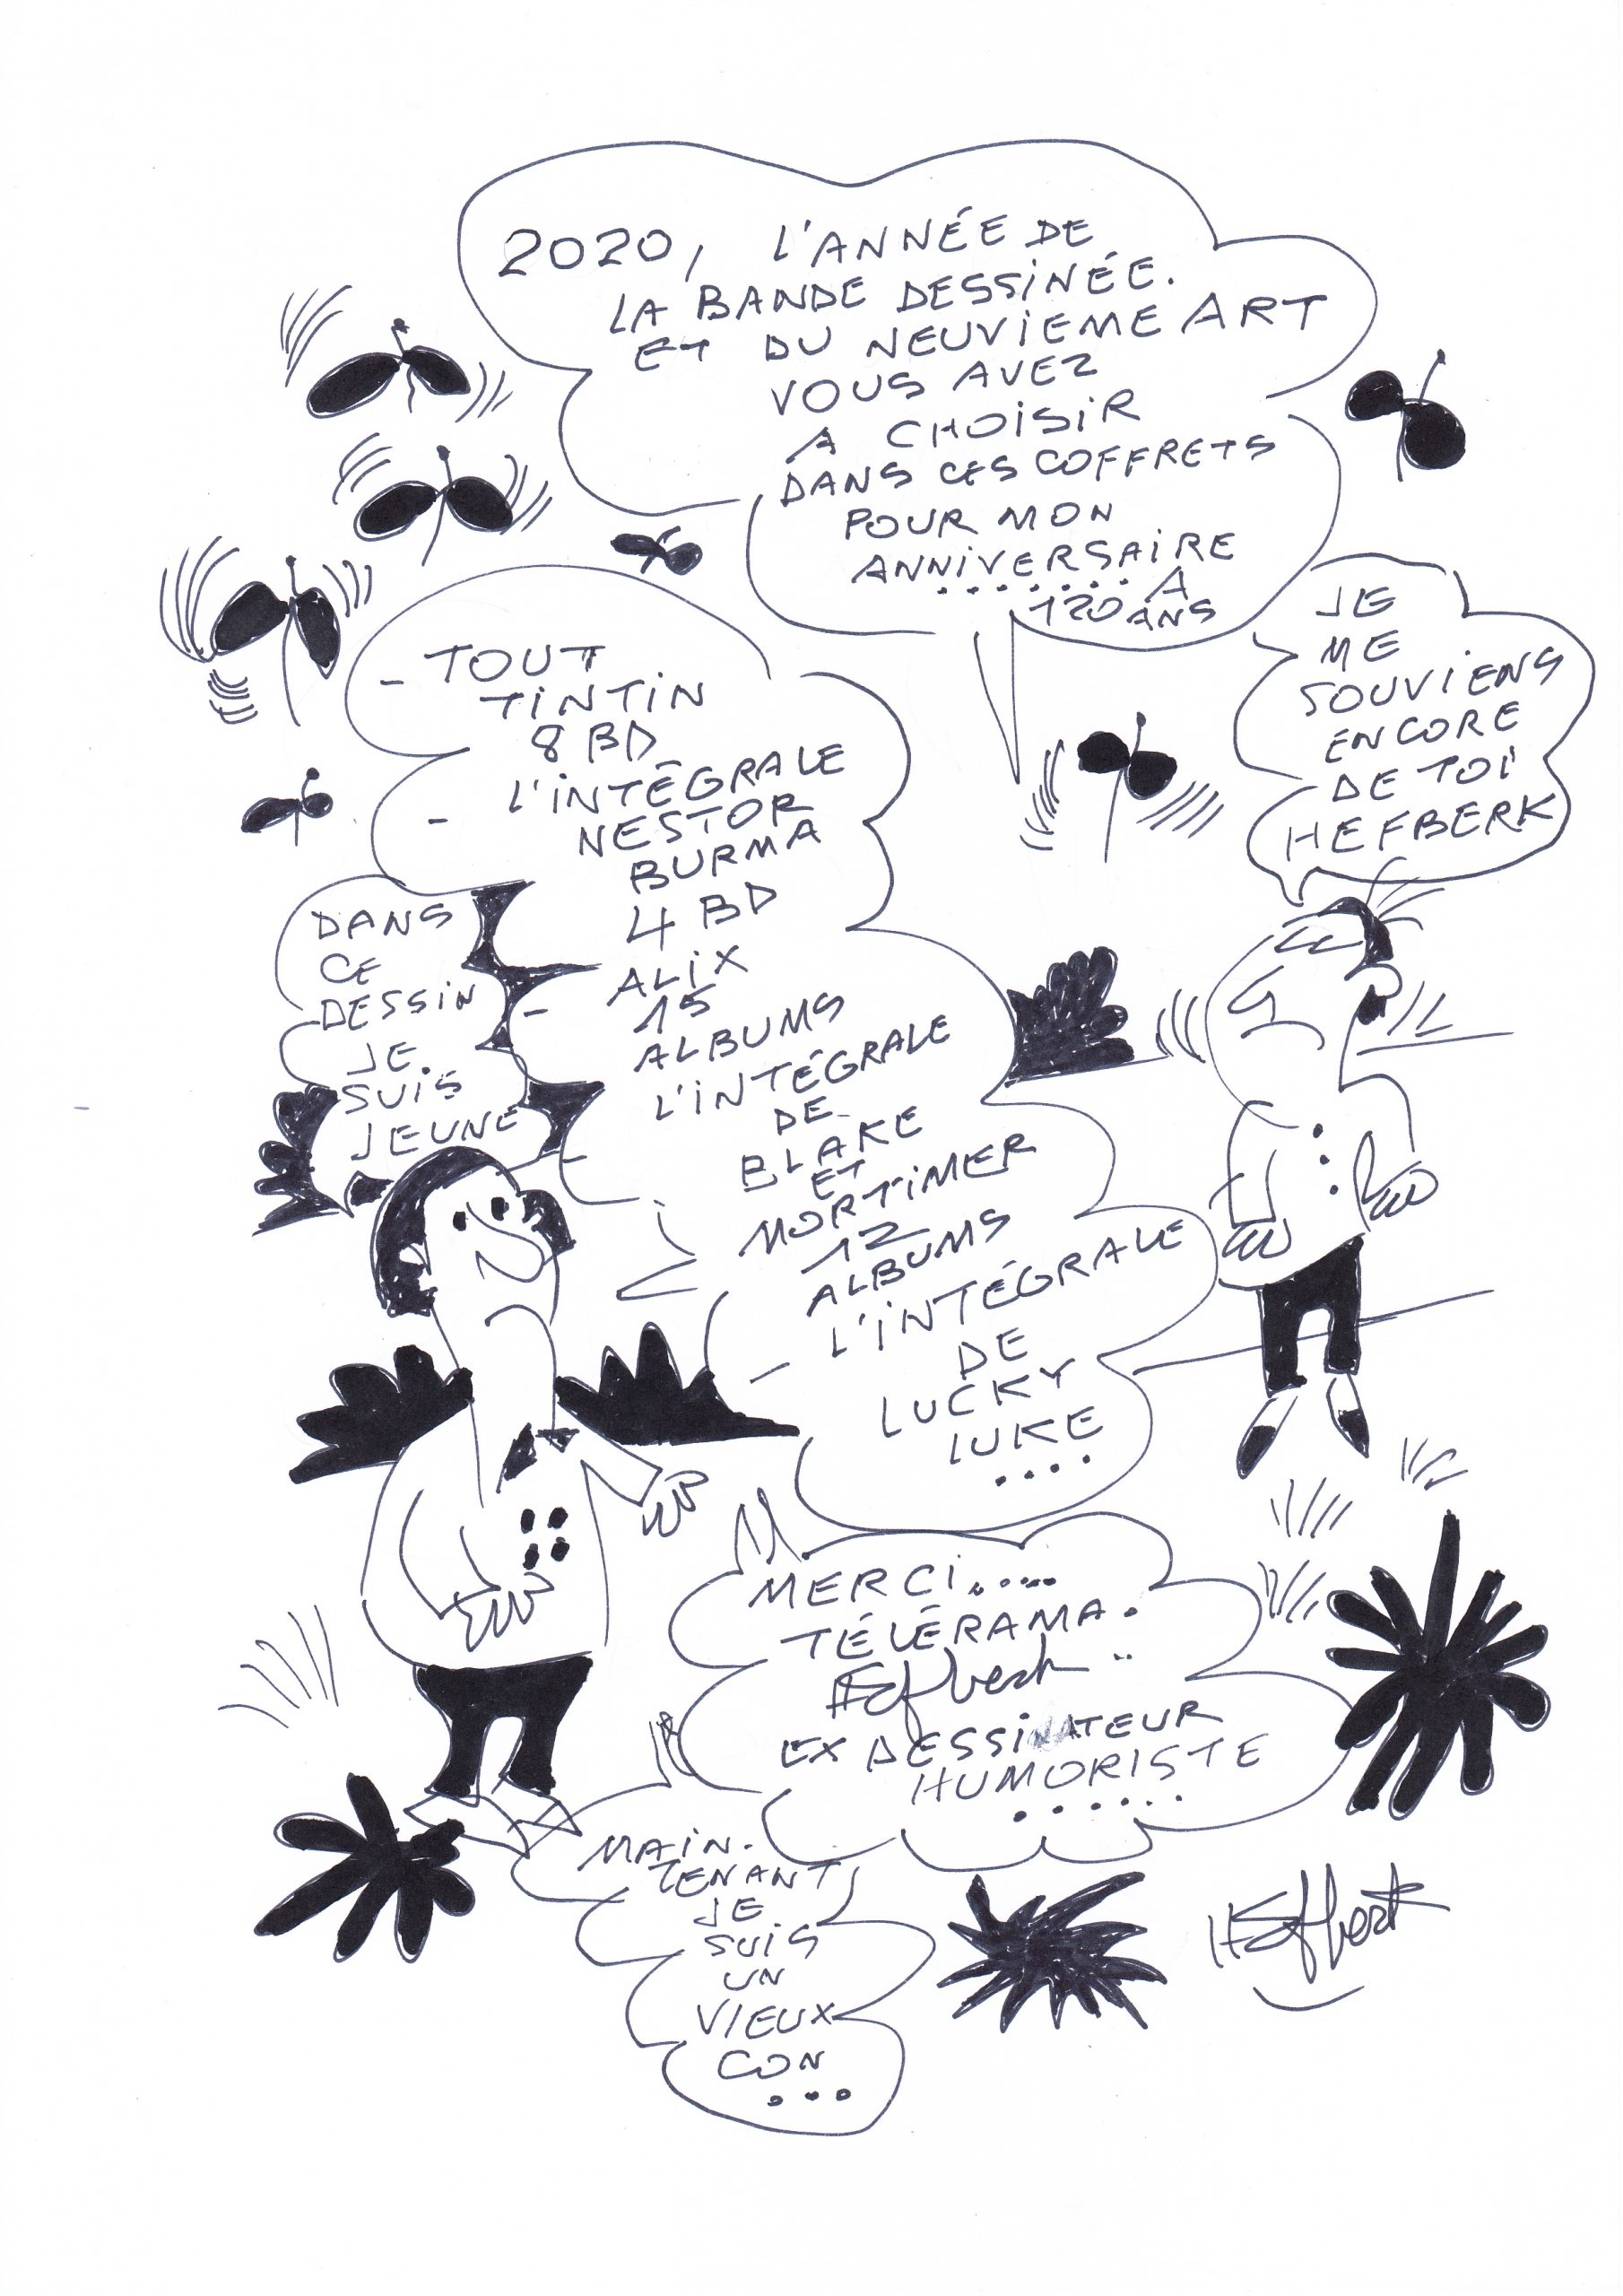 2020, L'ANNÉE DE
LA BANDE DESSINÉE.
ET DU NEUVIEME ART
VOUS AVEZ
A CHOISIR
DANS CES COFFRETS
POUR MON
ANNIVERSAIRE
........ A
120 ANS
JE
ME
SOUVIENS
ENCORE
DE TOI
HEFBERK
- TOUT
TINTIN
8 BD
- L'INTÉGRALE
NESTOR
BURMA
4 BD
- ALIX
15
ALBUMS
- L'INTÉGRALE
DE
BLAKE
ET
MORTIMER
12
ALBUMS
- L'INTÉGRALE
DE
LUCKY
LUKE
....
DANS
CE
DESSIN
JE
SUIS
JEUNE
MERCI.....
TÉLÉRAMA.
HEfberk ..
EX DESSINATEUR
HUMORISTE
......
MAIN-
TENANT
JE
SUIS
UN
VIEUX
CON
...
HEfberk